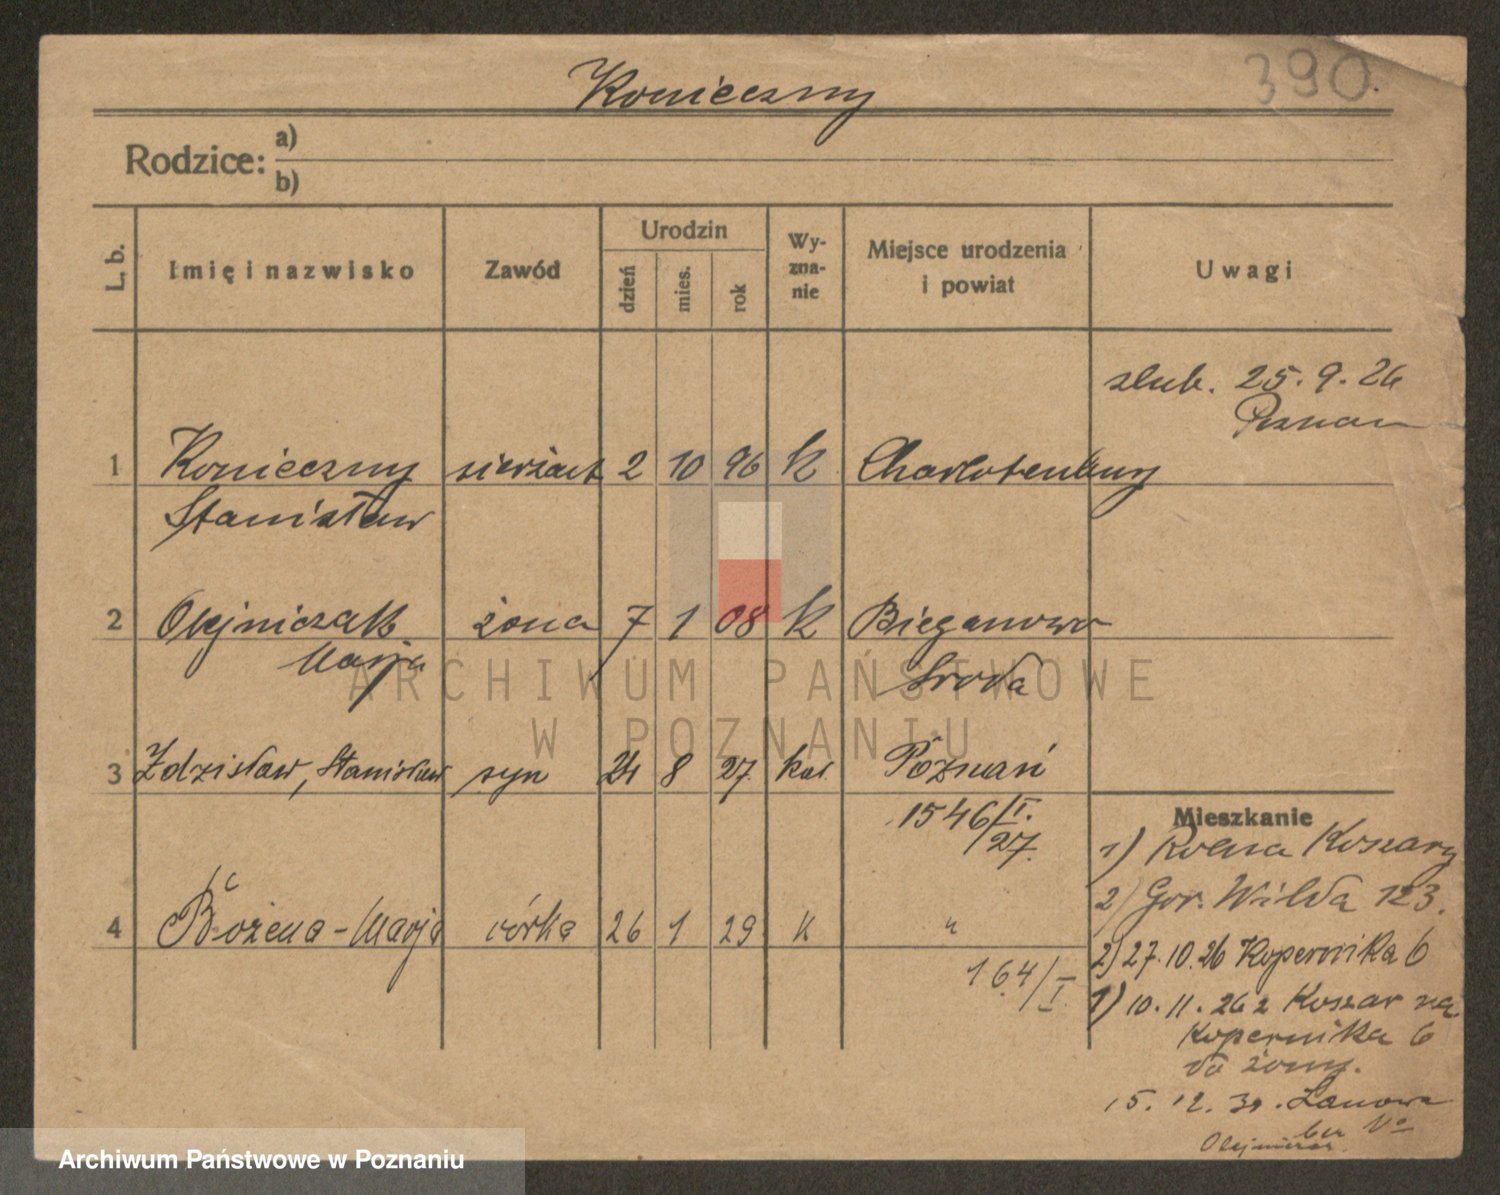 390.
Konieczny
Rodzice: a)
b)
L. b. Imię i nazwisko Zawód Urodzin dzień mies. rok Wy-zna-nie Miejsce urodzenia i powiat Uwagi
slub. 25.9.26
Poznan
1 Konieczny sierżant 2 10 96 k Charlotenburg
Stanisław
2 Olejniczak żona 7 1 08 k Bieganowo
Marja Sroda
3 Zdzisław, Stanisław syn 24 8 27 kat. Poznań
1546/I.
27.
Mieszkanie
1) Rolna Koszary
2) Gor. Wilda 123.
4 Bożena-Marja córka 26 1 29 k "
164/I
2) 27.10.26 Kopernika 6
1) 10.11.26 z Koszar na
Kopernika 6
do żony.
15.12.30. Łanowa
bez No
ARCHIWUM PAŃSTWOWE
W POZNANIU
Archiwum Państwowe w Poznaniu